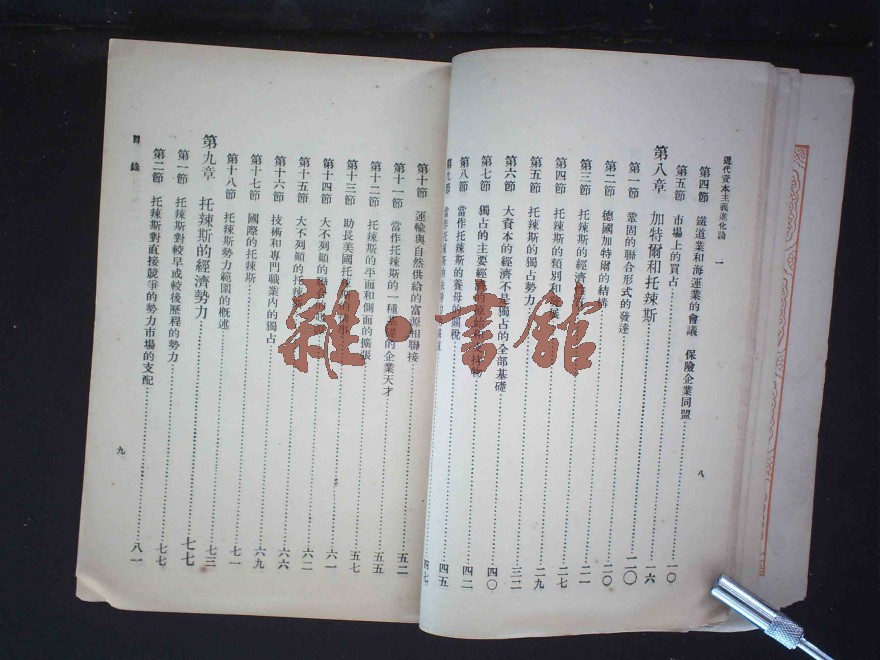 現代資本主義進化論 一
第四節 鐵道業和海運業的會議 保險企業同盟
第五節 市場上的買占 一〇
第八章 加特爾和托辣斯 一六
第一節 鞏固的聯合形式的發達 二〇
第二節 德國加特爾的結構 二〇
第三節 托辣斯的經濟 二一
第四節 托辣斯的類別和 展 二七
第五節 托辣斯的獨占勢力 二九
第六節 大資本的經濟不是獨占的全部基礎 三二
第七節 獨占的主要經 四〇
第八節 當作托辣斯的養母的關稅 四二
第九節 四五
八
四七
第十節 運輸與自然供給的富源相聯接 五二
第十一節 當作托辣斯的一種 的企業天才
第十二節 托辣斯的平面和側面的擴張 五五
第十三節 助長美國托 五七
第十四節 大不列顛的聯 六一
第十五節 大不列顛的托辣 六二
第十六節 技術和專門職業內的獨占 六六
第十七節 國際的托辣斯 六九
第十八節 托辣斯勢力範圍的概述 七一
第九章 托辣斯的經濟勢力 七三
第一節 托辣斯對較早或較後歷程的勢力 七七
第二節 托辣斯對直接競爭的勢力市場的支配 七七
目錄
九
八一
雜·書館